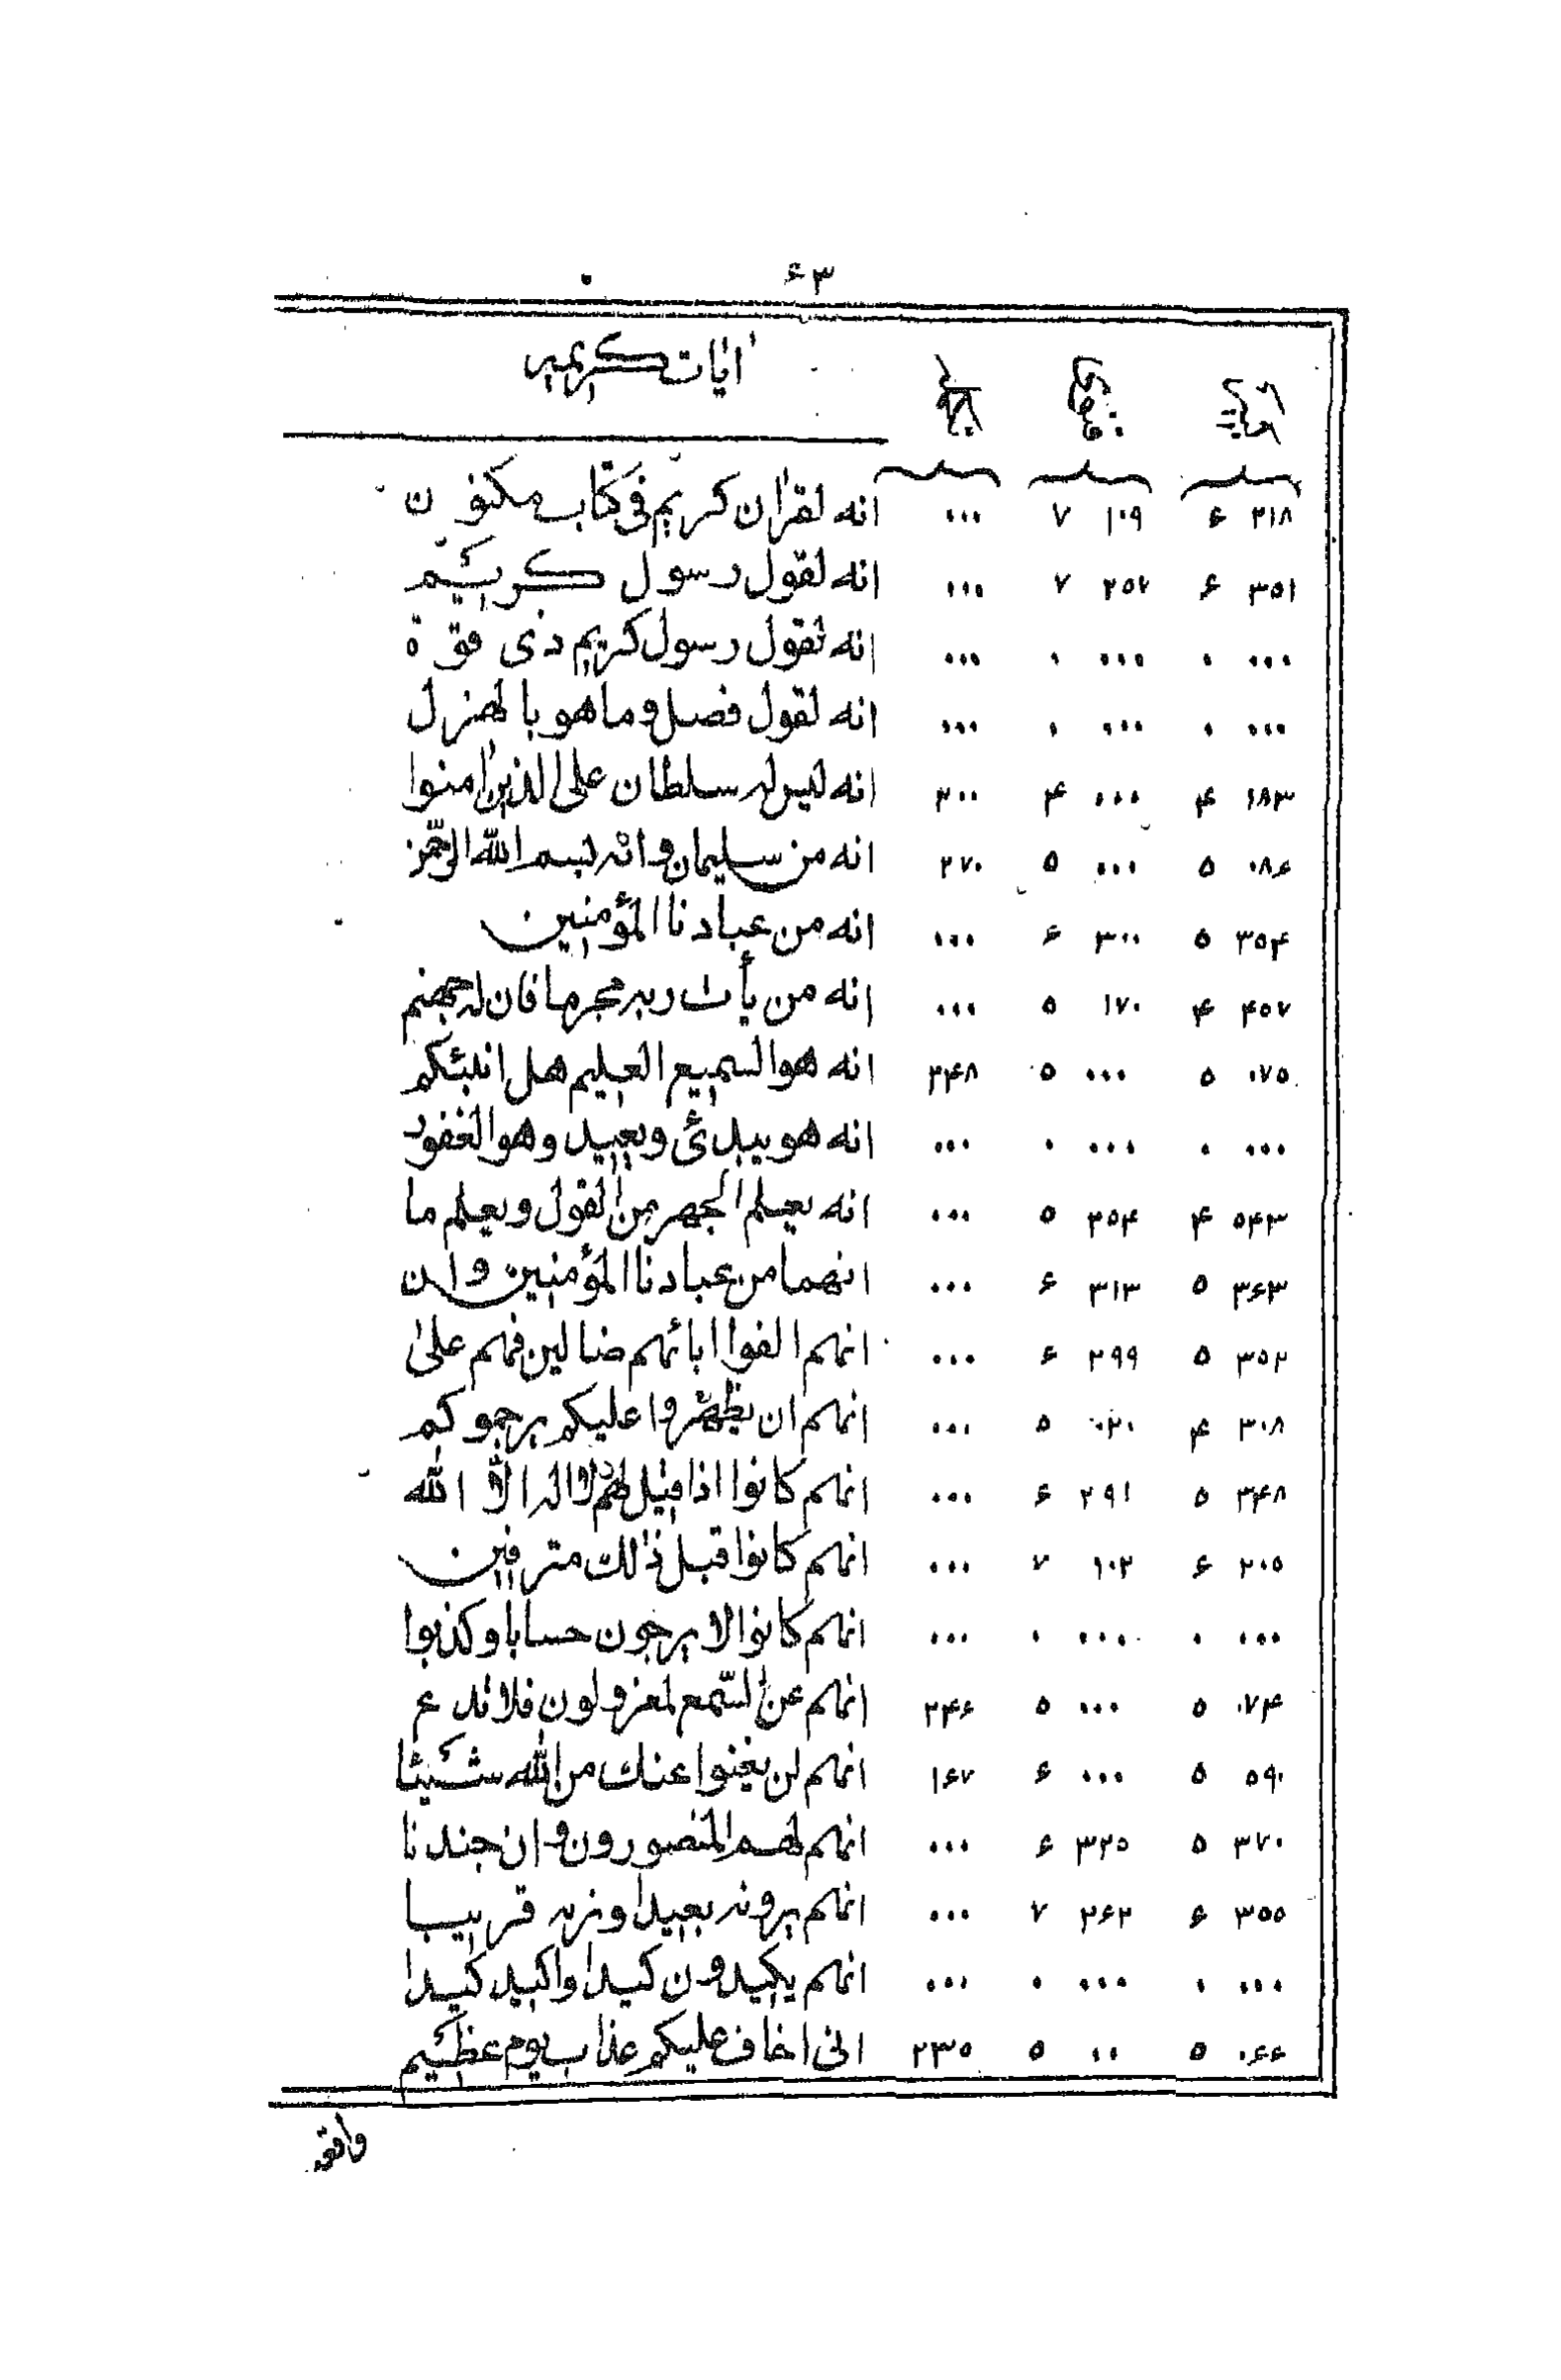 ۶۳
اٰیات كریمه
۲۱۸ ۶ ۱۰۹ ۷ ۰۰۰ انه لقراٰن كریم فی كتاب مكنون
۳۵۱ ۶ ۲۵۷ ۷ ۰۰۰ انه لقول رسول كریم
۰۰۰ ۰ ۰۰۰ ۰ ۰۰۰ انه لقول رسول كریم ذی قوة
۰۰۰ ۰ ۰۰۰ ۰ ۰۰۰ انه لقول فصل وما هو بالهزل
۱۸۳ ۴ ۰۰۰ ۴ ۳۰۰ انه لیس له سلطان علی الذین اٰمنوا
۰۸۶ ۵ ۰۰۰ ۵ ۲۷۰ انه من سلیمان وانه بسم الله الرحمن
۳۵۴ ۵ ۳۰۰ ۶ ۰۰۰ انه من عبادنا المؤمنین
۴۵۷ ۴ ۱۷۰ ۵ ۰۰۰ انه من یأت ربه مجرما فان له جهنم
۰۷۵ ۵ ۰۰۰ ۵ ۲۴۸ انه هو السمیع العلیم هل انبئكم
۰۰۰ ۰ ۰۰۰ ۰ ۰۰۰ انه هو یبدئ ویعید وهو الغفور
۵۴۳ ۴ ۲۵۴ ۵ ۰۰۰ انه یعلم الجهر من القول ویعلم ما
۳۶۳ ۵ ۳۱۳ ۶ ۰۰۰ انهما من عبادنا المؤمنین وان
۳۵۲ ۵ ۲۹۹ ۶ ۰۰۰ انهم الفوا اٰبائهم ضالین فهم علیٰ
۳۰۸ ۴ ۰۲۰ ۵ ۰۰۰ انهم ان یظهروا علیكم یرجموكم
۳۴۸ ۵ ۲۹۱ ۶ ۰۰۰ انهم كانوا اذا قیل لهم لا اله الا الله
۲۰۵ ۶ ۱۰۲ ۷ ۰۰۰ انهم كانوا قبل ذٰلك مترفین
۰۰۰ ۰ ۰۰۰ ۰ ۰۰۰ انهم كانوا لا یرجون حسابا وكذبوا
۰۷۴ ۵ ۰۰۰ ۵ ۲۴۶ انهم عن السّمع لمعزولون فلا تدع
۵۹۰ ۵ ۰۰۰ ۶ ۱۶۷ انهم لن یغنوا عنك من الله شیئا
۳۷۰ ۵ ۳۲۵ ۶ ۰۰۰ انهم لهم المنصورون وان جندنا
۳۵۵ ۶ ۲۶۲ ۷ ۰۰۰ انهم یرونه بعیدا ونریه قریبا
۰۰۰ ۰ ۰۰۰ ۰ ۰۰۰ انهم یكیدون كیدا واكید كیدا
۰۶۶ ۵ ۰۰ ۵ ۲۳۵ انی اخاف علیكم عذاب یوم عظیم